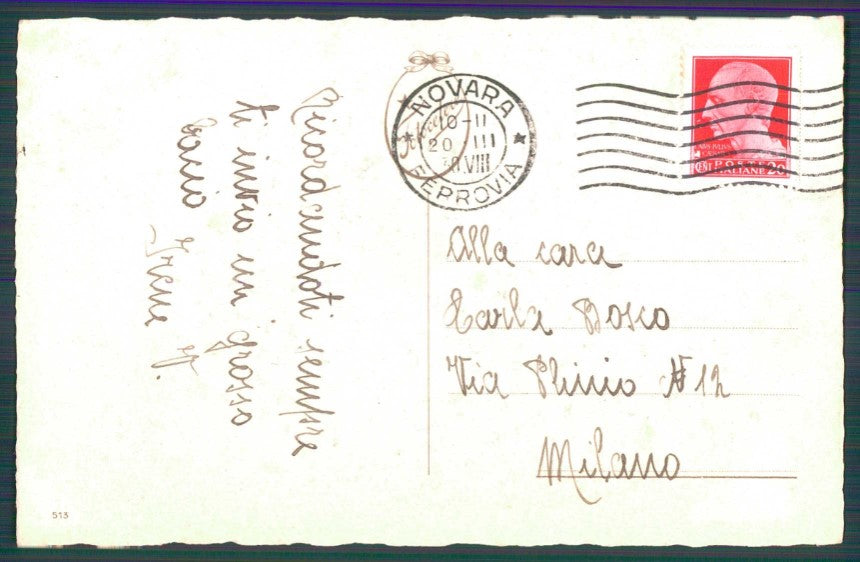 Ricordandoti sempre
ti invio un grosso
bacio Irene
NOVARA
10-II
20 III
VIII
FERROVIA
POSTE
ITALIANE 20
Alla cara
Carla Bosco
Via Plinio N 12
Milano
513